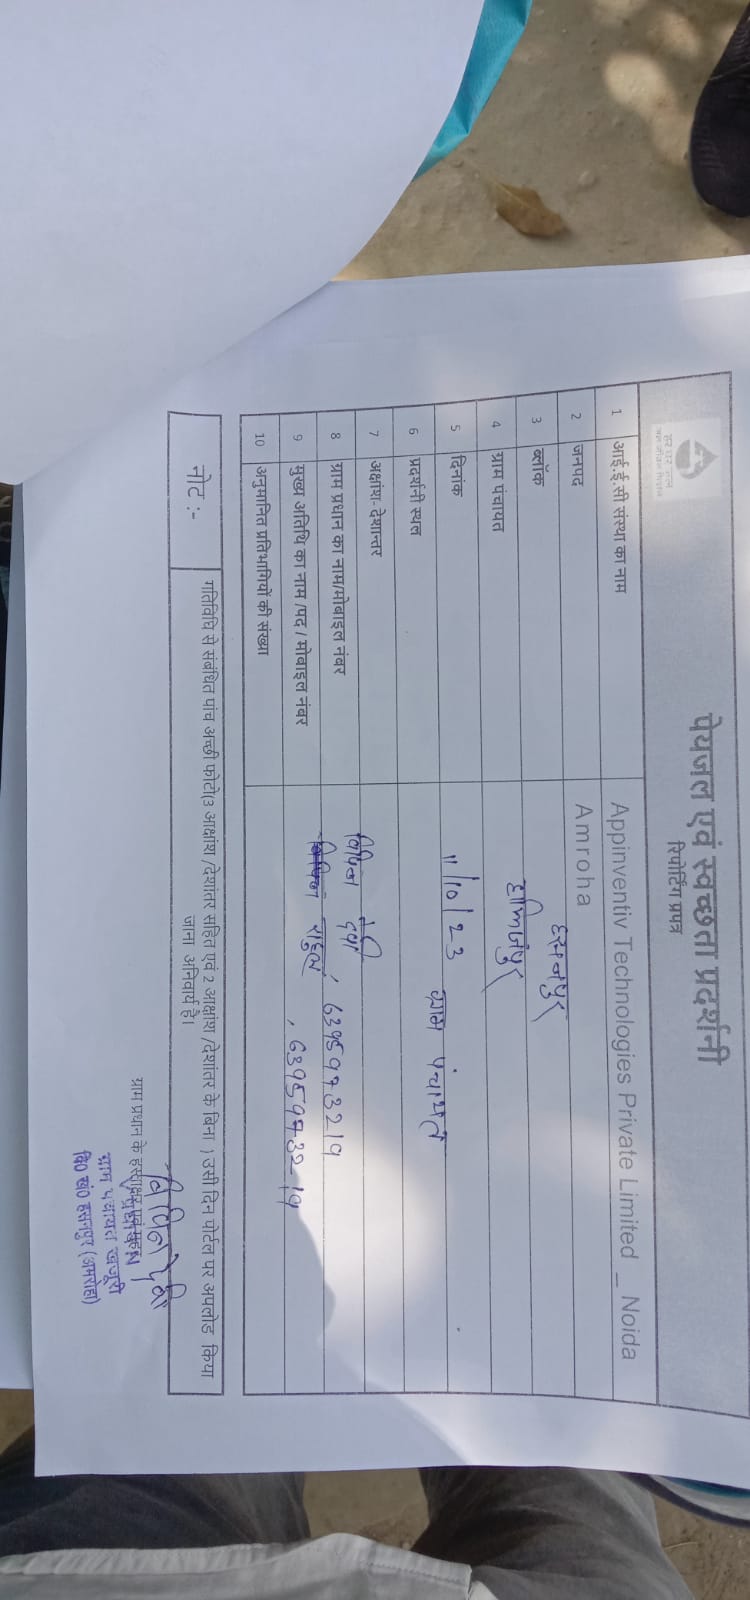 हर घर जल
जल जीवन मिशन
पेयजल एवं स्वच्छता प्रदर्शनी
रिपोर्टिंग प्रपत्र
1 आई.ई.सी संस्था का नाम Appinventiv Technologies Private Limited _ Noida
2 जनपद Amroha
3 ब्लॉक हसनपुर
4 ग्राम पंचायत
5 दिनांक 11/10/23
6 प्रदर्शनी स्थल ग्राम पंचायत
7 अक्षांश-देशान्तर
8 ग्राम प्रधान का नाम/मोबाइल नंबर विपिन देवी, 6395973219
9 मुख्य अतिथि का नाम /पद / मोबाइल नंबर राहुल, 6395973219
10 अनुमानित प्रतिभागियों की संख्या
नोट :- गतिविधि से संबंधित पांच अच्छी फोटो(3 आक्षांश /देशांतर सहित एवं 2 आक्षांश /देशांतर के बिना ) उसी दिन पोर्टल पर अपलोड किया
जाना अनिवार्य है।
ग्राम प्रधान के हस्ताक्षर
ग्राम पंचायत खजूरी
वि0 खं0 हसनपुर (अमरोहा)